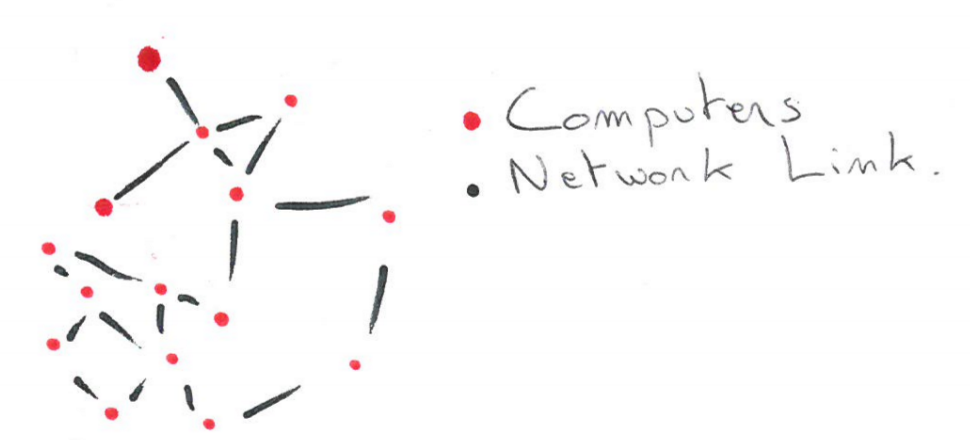 Computers
Network Link.